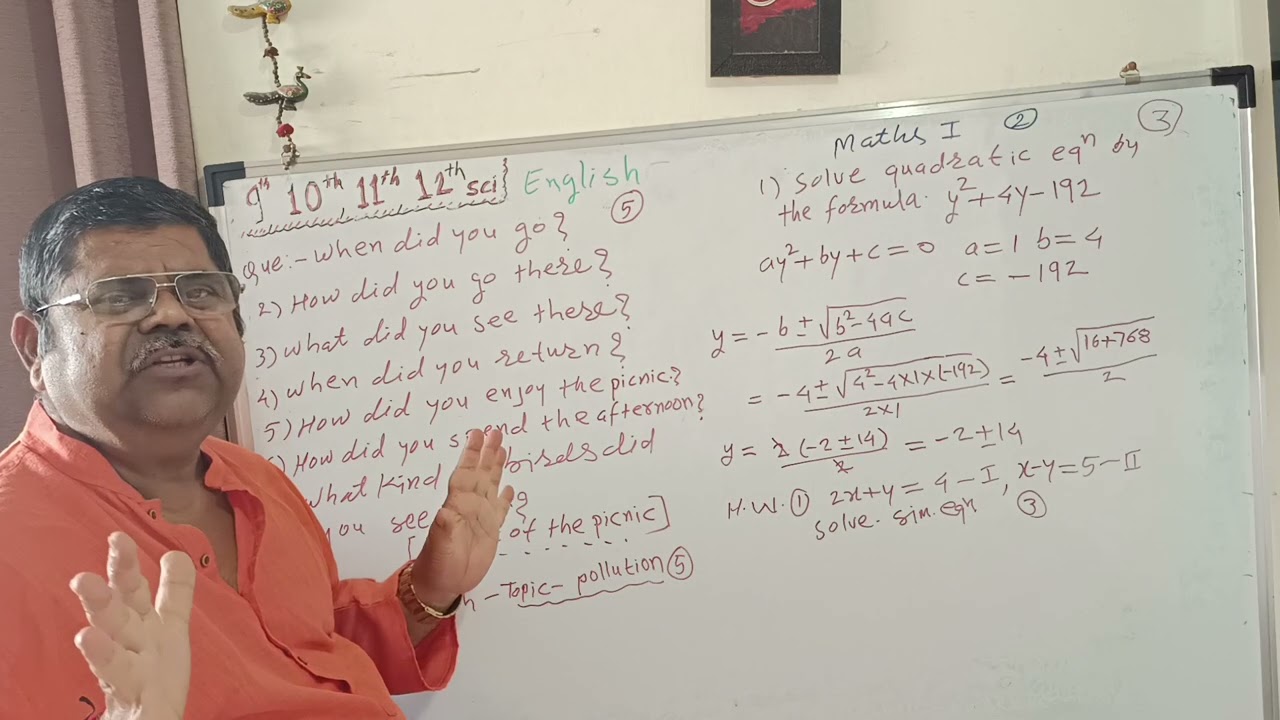 9th 10th 11th 12th sci} English
⑤
Que:- When did you go?
2) How did you go there?
3) What did you see there?
4) When did you return?
5) How did you enjoy the picnic?
How did you spend the afternoon?
What kind birds did
you see ?
[ of the picnic]
- Topic - pollution ⑤
Maths I ② ③
1) Solve quadratic eqn by
the formula. y²+4y-192
ay²+by+c=0 a=1 b=4
c=-192
y = -b ± √b²-4ac / 2a
= -4 ± √4²-4×1×(-192) / 2×1 = -4 ± √16+768 / 2
y = 2(-2±14) / 2 = -2±14
H.W. ① 2x+y=4-I, x-y=5-II
solve. sim. eqn ③